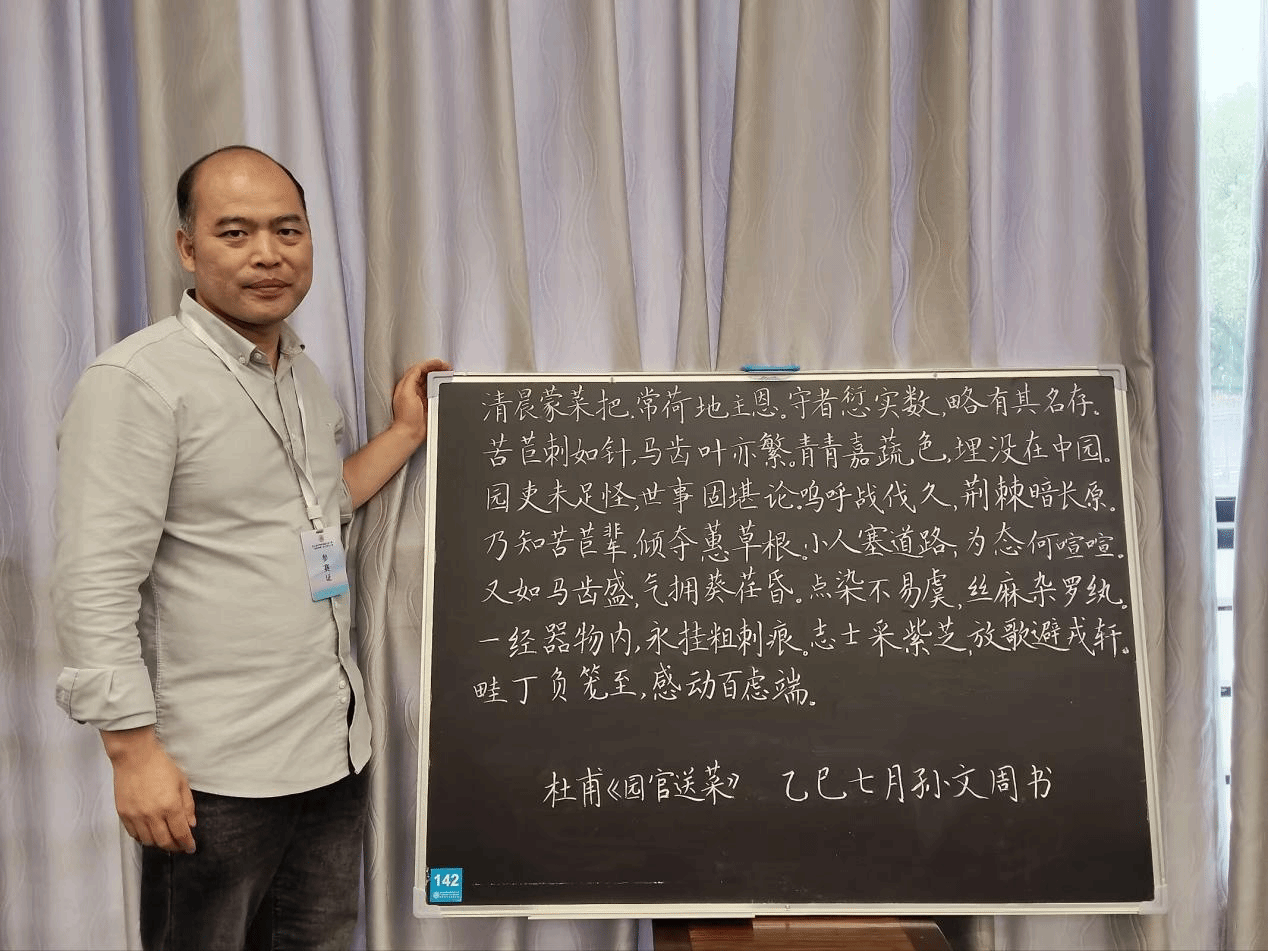 清晨蒙菜把,常荷地主恩。守者愆实数,略有其名存。
苦苣刺如针,马齿叶亦繁。青青嘉蔬色,埋没在中园。
园吏未足怪,世事固堪论。呜呼战伐久,荆棘暗长原。
乃知苦苣辈,倾夺蕙草根。小人塞道路,为态何喧喧。
又如马齿盛,气拥葵荏昏。点染不易虞,丝麻杂罗纨。
一经器物内,永挂粗刺痕。志士采紫芝,放歌避戎轩。
畦丁负笼至,感动百虑端。
杜甫《园官送菜》 乙巳七月孙文周书
参赛证
142